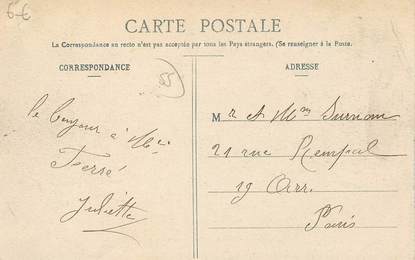 6-E
CARTE POSTALE
La Correspondance au recto n'est pas acceptée par tous les Pays étrangers. (Se renseigner à la Poste.
CORRESPONDANCE
ADRESSE
55
le bonjour à Mlle
Ferré
Juliette
Mr et Mme
21 rue
19 Arr.
Paris